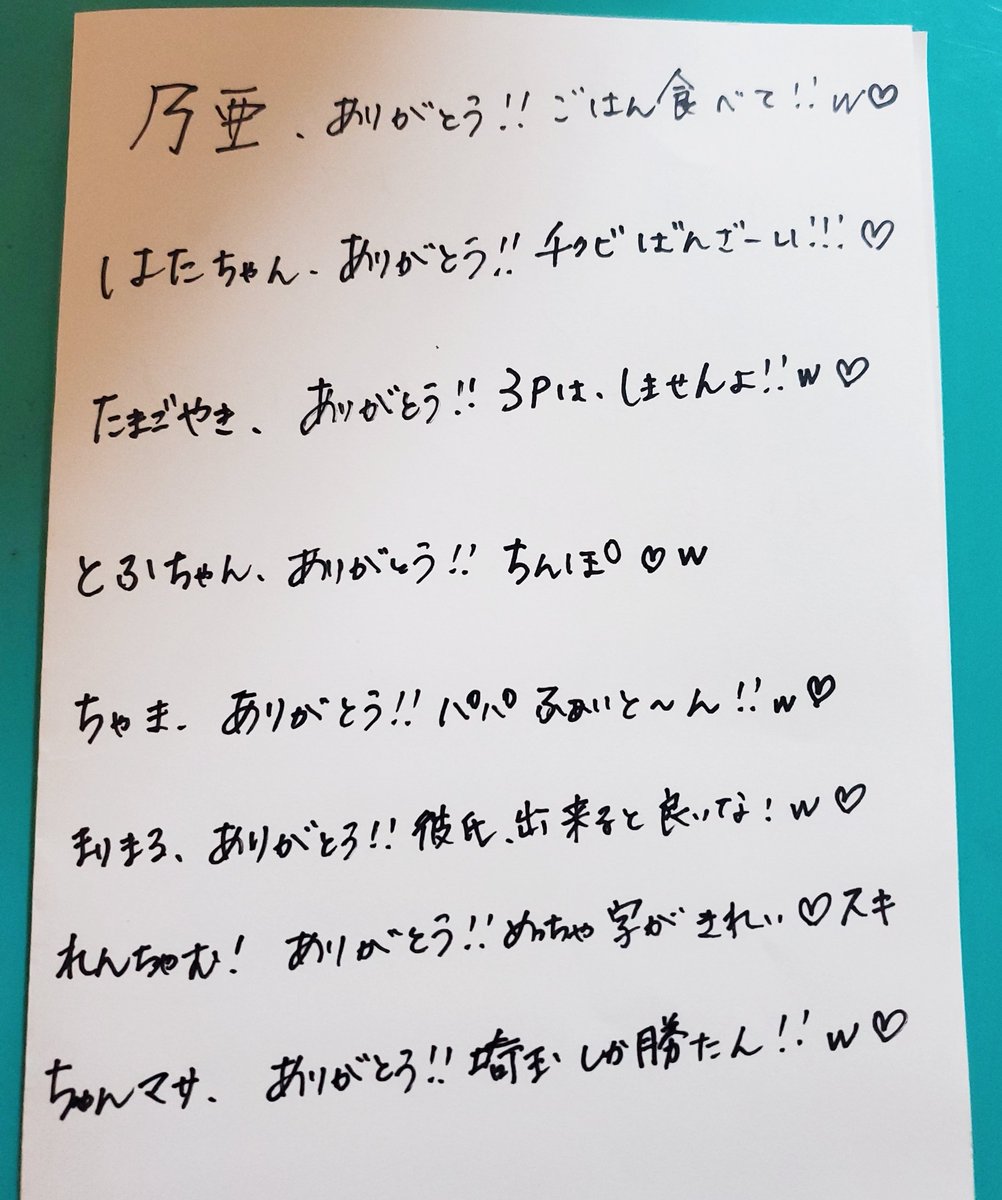 乃亜、ありがとう!!ごはん食べて!!w♡
しほたちゃん、ありがとう!!チクビばんざーい!!!♡
たまごやき、ありがとう!!3Pは、しませんよ!!w♡
とふちゃん、ありがとう!!ちんぽ♡w
ちゃま、ありがとう!!パパふぁいと〜ん!!w♡
まりまろ、ありがとう!!彼氏、出来ると良いな!w♡
れんちゃむ!ありがとう!!めっちゃ字がきれい♡スキ
ちゃんマサ、ありがとう!!埼玉しか勝たん!!w♡